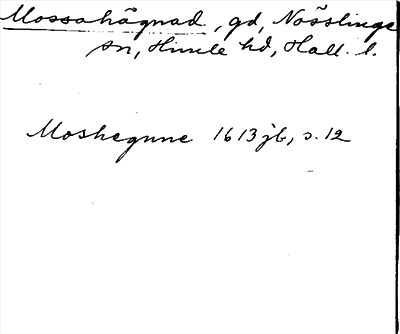 Mossahägnad, gd, Nösslinge
sn, Himle hd, Hall. l.
Moshegnne 1613 jb, s. 12